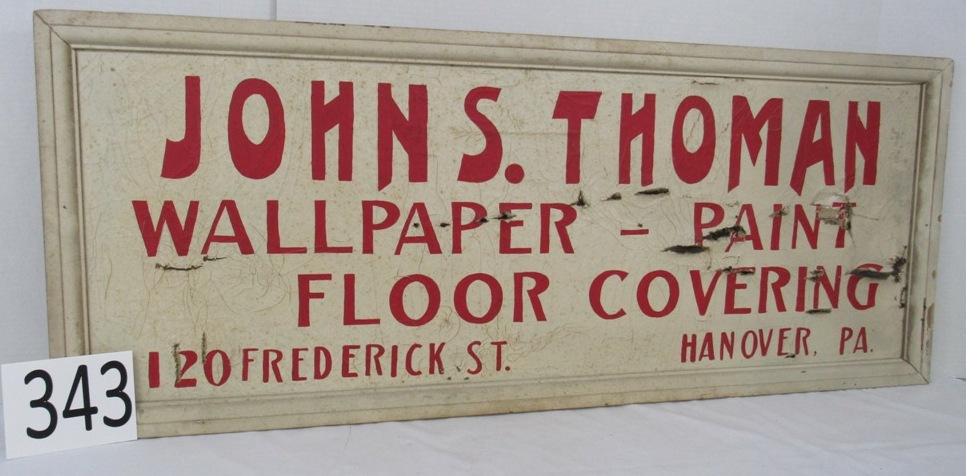 JOHN S. THOMAN
WALLPAPER - PAINT
FLOOR COVERING
120 FREDERICK ST. HANOVER, PA.
343